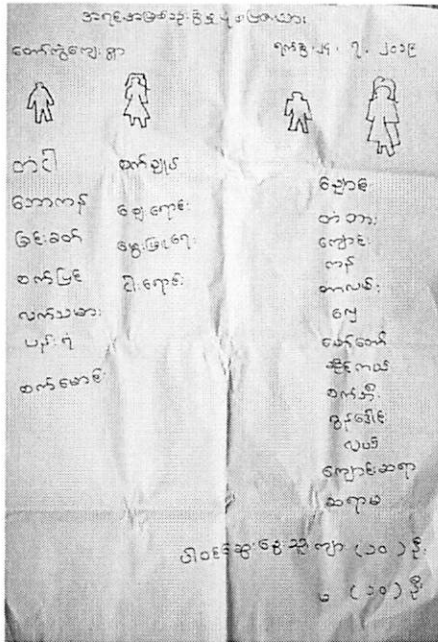 အရင်းအမြစ်ဦးစီးမှုပုံစံပြဇယား
တောကွဲကျေးရွာ
ရက်စွဲ၊ ၂၄. ၇. ၂၀၁၉
တံငါ
ဘောကန်
ခြင်းခတ်
စက်ပြင်
လက်သမား
ပန်းရံ
စက်မောင်း
စက်ချုပ်
ဈေးရောင်း
မွေးမြူရေး
ငါးရောင်း
ညောင်
တံတား
ကျောင်း
ကန်
ကာလမ်း
လှေ
မော်တော်
ဆိုင်ကယ်
စက်ဘီး
ထွန်ဒေါင်း
လယ်
ကျောင်းဆရာ
ဆရာမ
ပါဝင်ဆွေးနွေးသူ ကျာ (၁၀) ဦး
မ (၁၀) ဦး